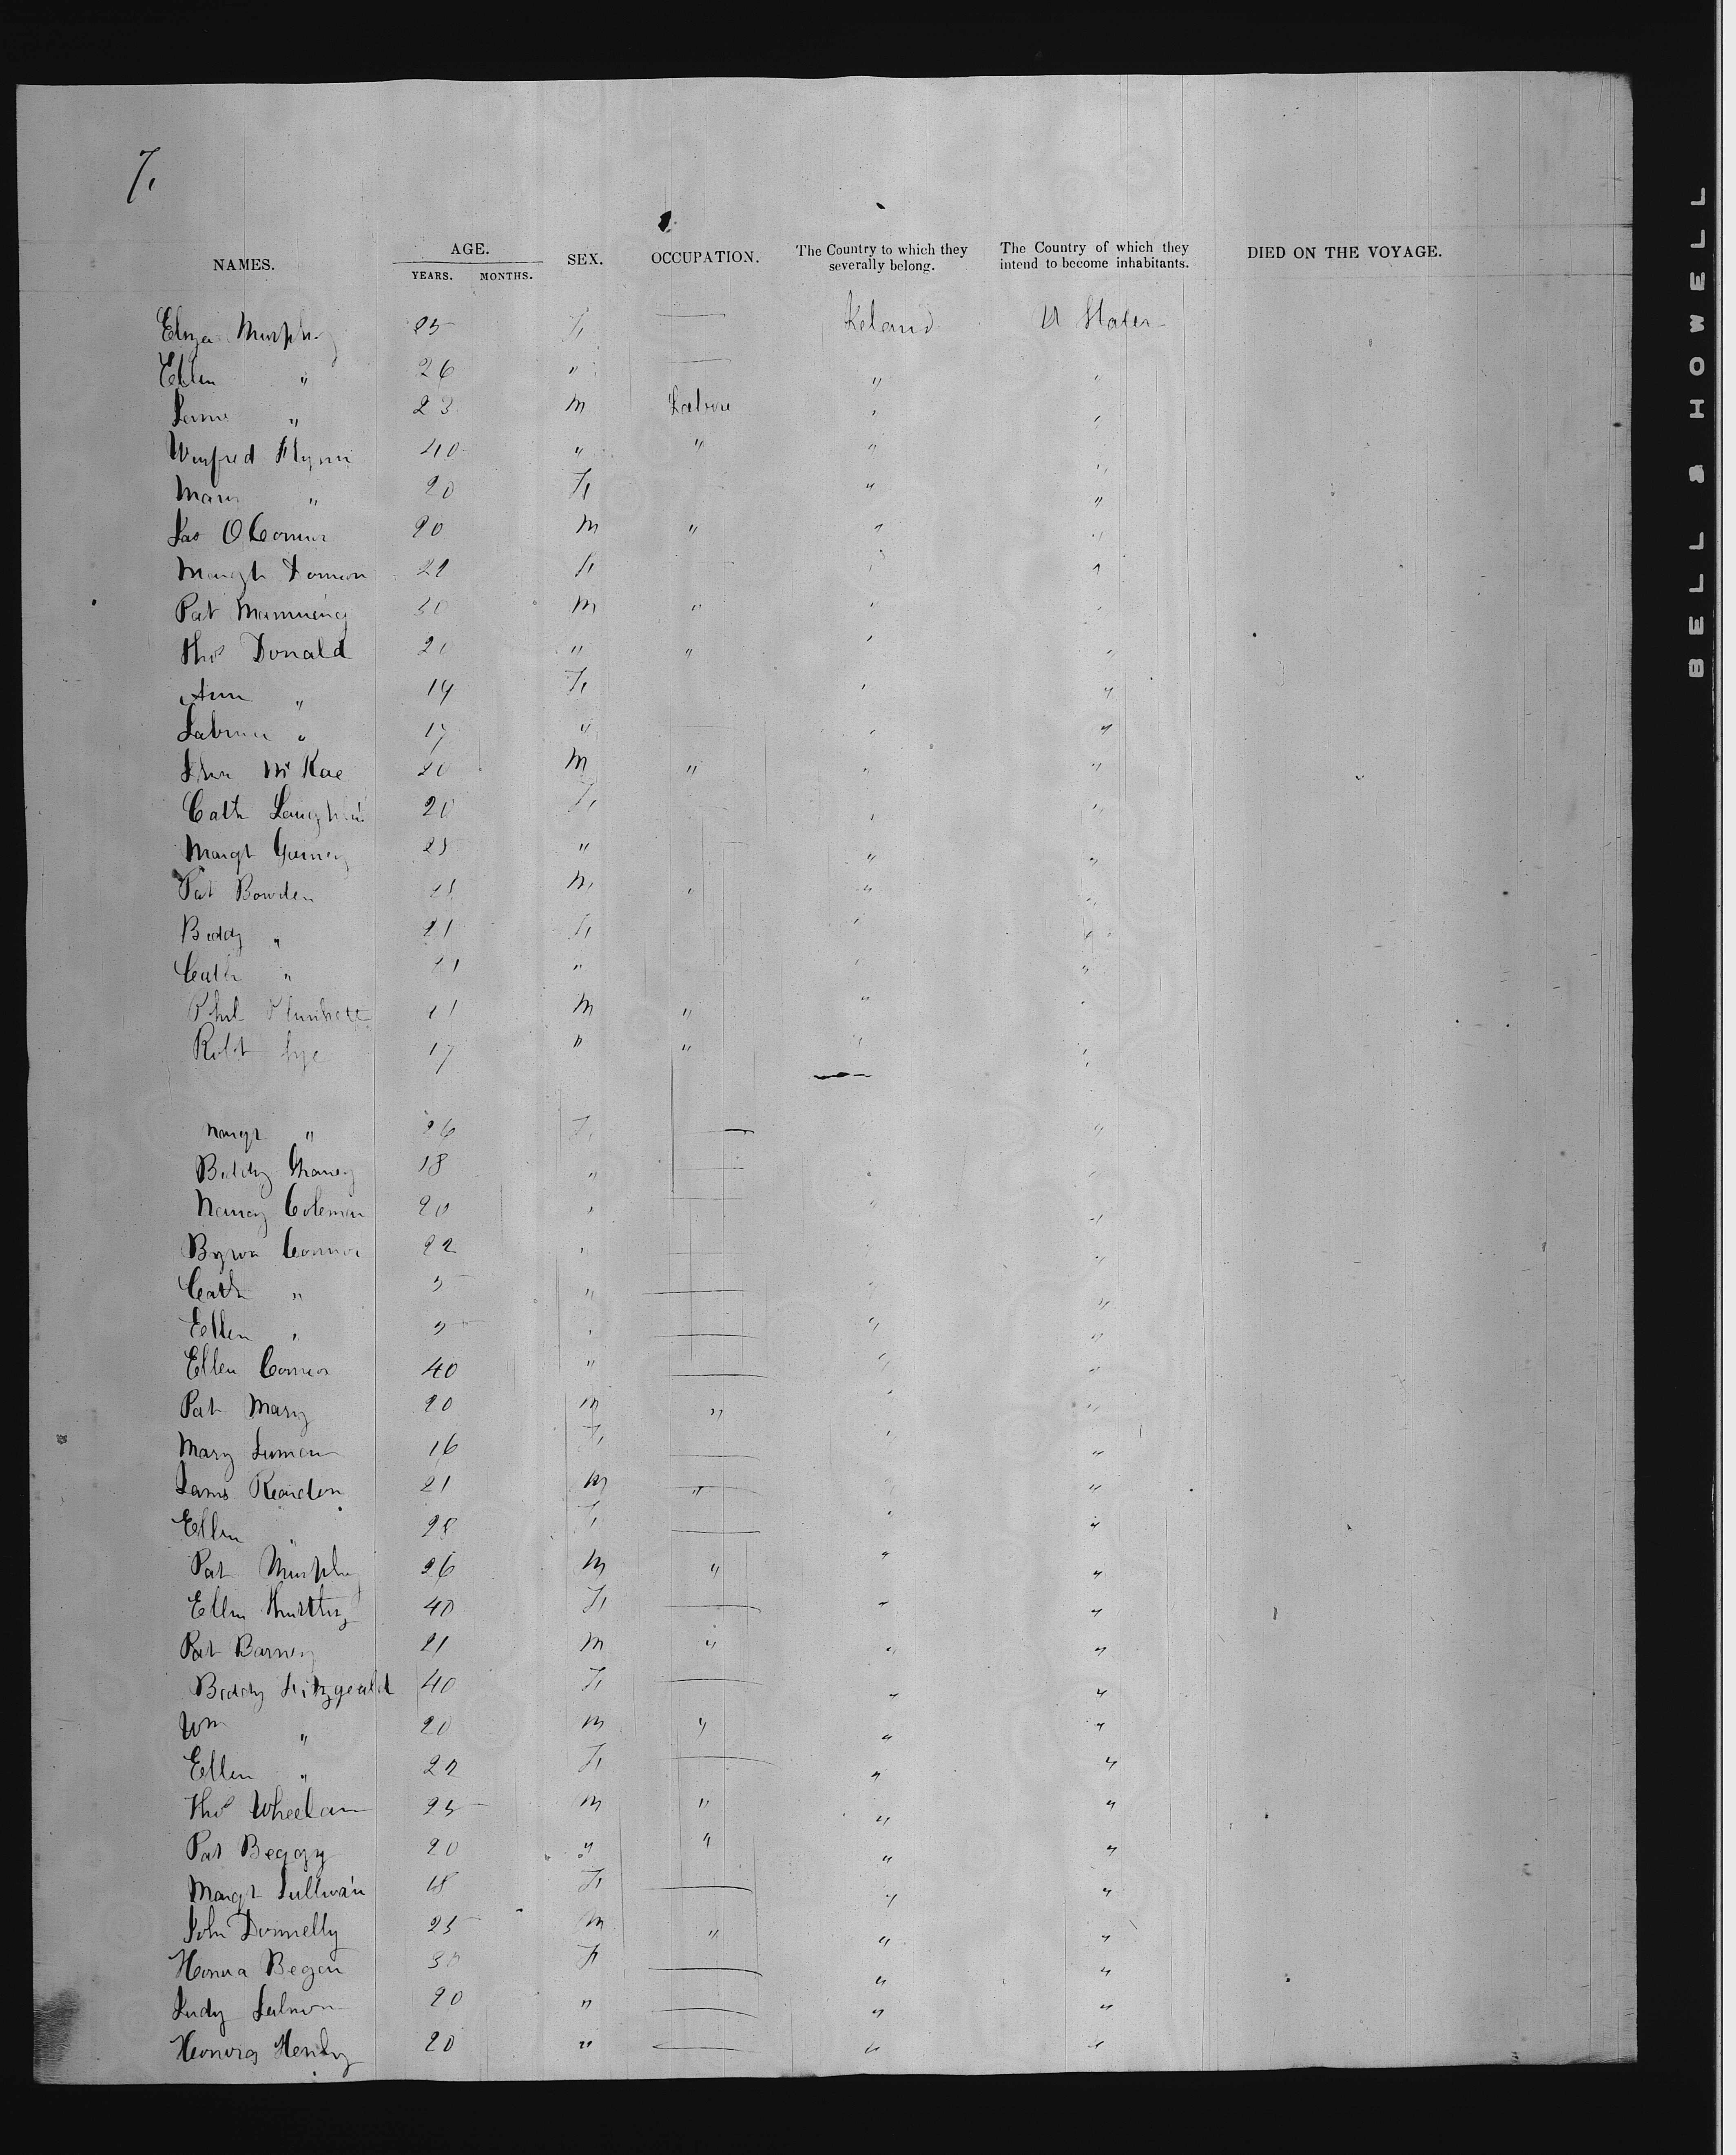 7.
NAMES. AGE. YEARS. MONTHS. SEX. OCCUPATION. The Country to which they severally belong. The Country of which they intend to become inhabitants. DIED ON THE VOYAGE.
Eliza Murphy 25 F. — Ireland U States
Ellen " 26 " — " "
James " 23 M Labore " "
Winfred Flynn 40 " " " "
Mary " 20 F. " "
Jas O,Connor 20 M " " "
Margt 22 F. " "
Pat Manning 30 M " " "
Thos Donald 20 " " " "
Ann " 14 F. " "
" 17 " " "
Mc Kae 20 M " " "
Cath Laughlin 20 F. " "
Margt 25 " " "
Pat Bowden 21 M. " " "
Biddy " 21 F. " "
Cath " 21 " " "
Phil Plunkett 21 M " " "
Robt 17 " " " "
Margt " 26 F. — "
Biddy 18 " — " "
Nancy Coleman 20 " — " "
Connor 22 " — " "
Cath " " — " "
Ellen " " — " "
Ellen Connor 40 " — " "
Pat Mary 20 M " " "
Mary 16 F. — " "
James Reardon 21 M " " "
Ellen " 28 F. — " "
Pat Murphy 26 M " " "
Ellen 40 F. — " "
Pat Barney 21 M " " "
Biddy Fitzgerald 40 F. — " "
Wm " 20 M " " "
Ellen " 22 F. — " "
Thos Wheelan 25 M " " "
Pat Beggy 20 " " " "
Margt Sullivan 18 F. — " "
John Donnelly 25 M " " "
Honora Began 30 F. — " "
Judy 20 " — " "
Honora Henley 20 " — " "
BELL & HOWELL